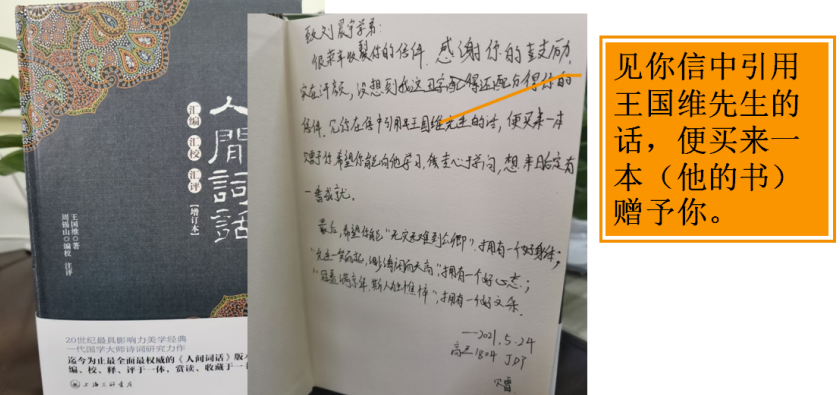 人間詞話
汇编 汇校 汇评
【增订本】
王国维 著
周锡山 编校 注评
20世纪最具影响力美学经典
一代国学大师诗词研究力作
迄今为止最全面最权威的《人间词话》版
编、校、释、评于一体，赏读、收藏于一
上海三联书店
致刘晨宇学弟：
很荣幸收到你的信件，感谢你的鼓励，
实在汗颜，没想到我这丑字配得还配得你的
信件。见你在信中引用王国维先生的话，便买来一本
赠予你希望你能向他学习，俵主心于学问，想来日后定有
一番成就。
最后，希望你能“无灾无难到公卿”，拥有一个好身体；
，拥有一个好心态；
“冠盖满京华，斯人独憔悴”，拥有一个好文采。
——2021.5.24
高三1804 JDP
见你信中引用
王国维先生的
话，便买来一
本（他的书）
赠予你。